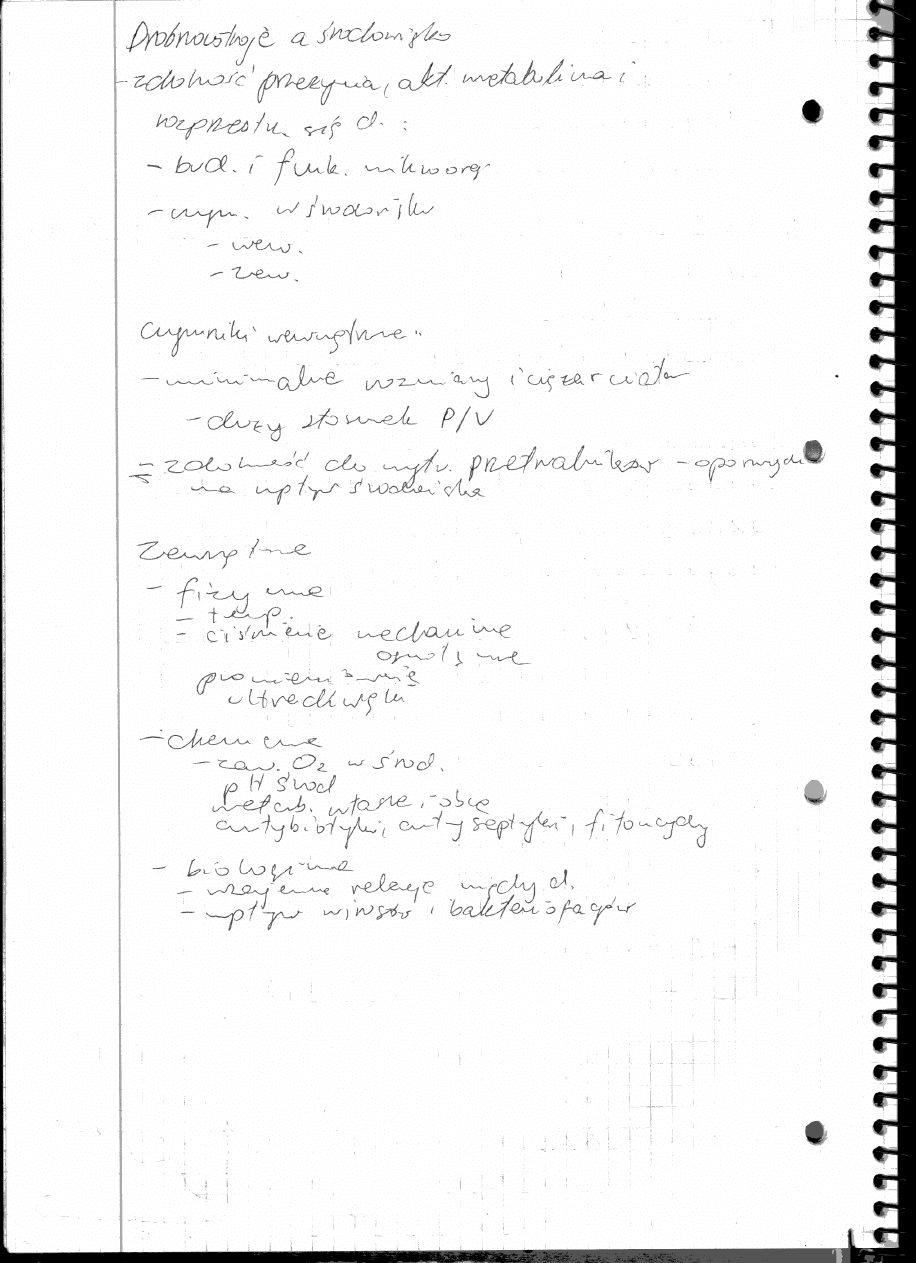 Drobnoustroje a środowisko
- zdolność przeżycia, akt. metaboliczna i
rozprestrz. się d. :
- bud. i funk. mikroorg
- czyn. w środowisku
- wew.
- zew.
Czynniki wewnętrzne:
- minimalne rozmiary i ciężar ciała
- duży stosunek P/V
- zdolność do wytw. przetrwalników - opornych
na wpływ środowiska
Zewnętrzne
- fizyczne
- temp.
- ciśnienie mechaniczne
osmotyczne
promieniowanie
ultradźwięki
- chemiczne
- zaw. O2 w środ.
pH środ
metab. własne i obce
antybiotyki, antyseptyki, fitoncydy
- biologiczne
- wzajemne relacje między d.
- wpływ wirusów i bakteriofagów